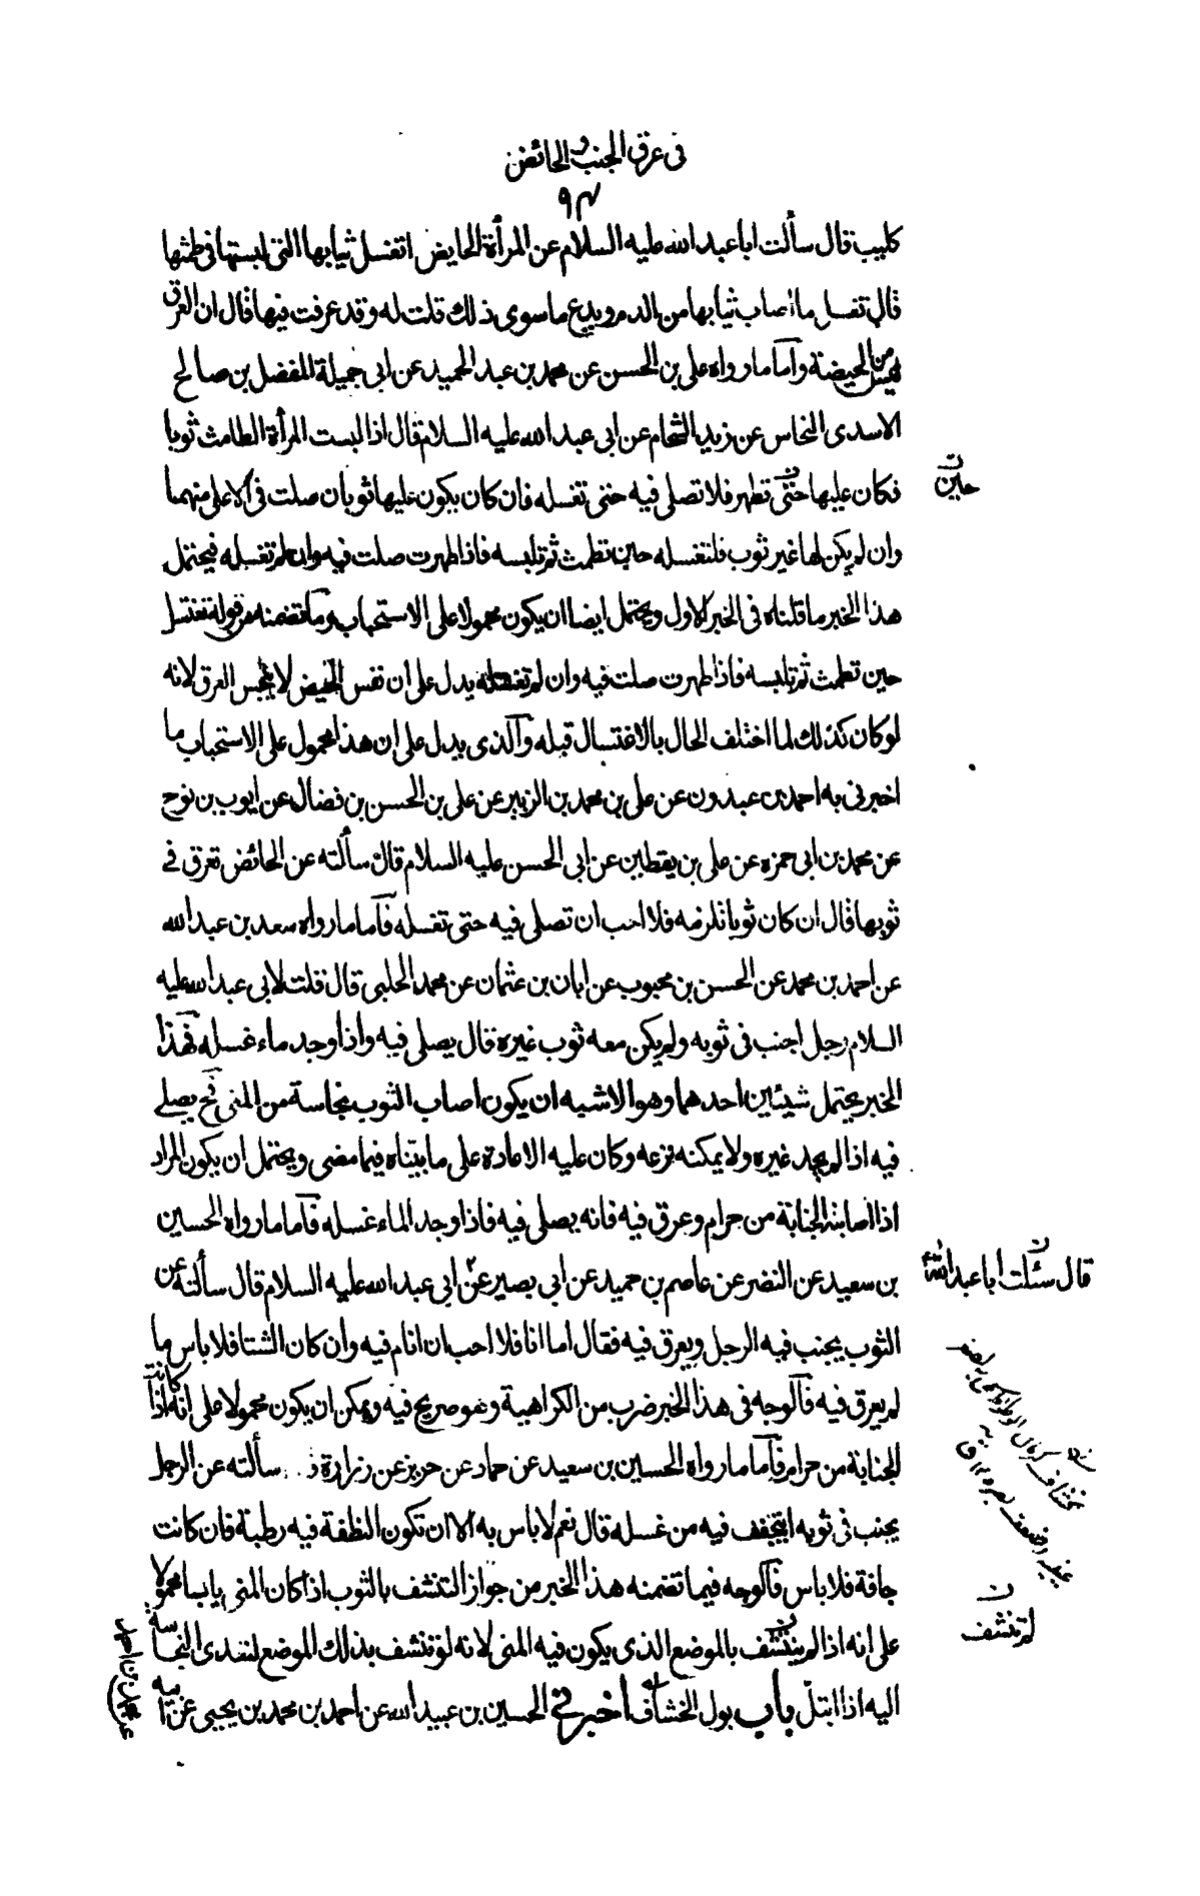 فى عرق الجنب والحائض
٩٤
كليب قال سألت ابا عبد الله عليه السلام عن المرأة الحايض اتغسل ثيابها التى لبستها فى طمثها
قال تغسل ما اصاب ثيابها من الدم ويدع ما سوى ذلك قلت له وقد عرقت فيها قال ان العرق
ليس من الحيضة وأما ما رواه على بن الحسن عن محمد بن عبد الحميد عن ابى جميلة المفضل بن صالح
الاسدى النخاس عن زيد الشحام عن ابى عبد الله عليه السلام قال اذا لبست المرأة الطامث ثوبا
فكان عليها حتى تطهر فلا تصلى فيه حتى تغسله فان كان يكون عليها ثوبان صلت فى الاعلى منهما
حين
وان لم يكن لها غير ثوب فلتغسله حين تطمث ثم تلبسه فاذا طهرت صلت فيه وان لم تغسله فيحتمل
هذا الخبر ما قلناه فى الخبر الاول ويحتمل ايضا ان يكون محمولا على الاستحباب وما تضمنه من قوله تغتسل
حين تطمث ثم تلبسه فاذا طهرت صلت فيه وان لم تغسله يدل على ان نفس الحيض لا ينجس العرق لانه
لو كان كذلك لما اختلف الحال بالاغتسال قبله والذى يدل على ان هذا محمول على الاستحباب ما
اخبرنى به احمد بن عبدون عن على بن محمد بن الزبير عن على بن الحسن بن فضال عن ايوب بن نوح
عن محمد بن ابى حمزه عن على بن يقطين عن ابى الحسن عليه السلام قال سألته عن الحائض تعرق فى
ثوبها قال ان كان ثوبا تلزمه فلا احب ان تصلى فيه حتى تغسله فأما ما رواه سعد بن عبد الله
عن احمد بن محمد عن الحسن بن محبوب عن ابان بن عثمان عن محمد الحلبى قال قلت لابى عبد الله عليه
السلام رجل اجنب فى ثوبه ولم يكن معه ثوب غيره قال يصلى فيه واذا وجد ماء غسله فهذا
الخبر يحتمل شيئين احدهما وهو الاشبه ان يكون اصاب الثوب نجاسة من المنى فح يصلى
فيه اذا لم يجد غيره ولا يمكنه نزعه وكان عليه الاعادة على ما بيناه فيما مضى ويحتمل ان يكون المراد
اذا اصابته الجنابة من حرام وعرق فيه فانه يصلى فيه فاذا وجد الماء غسله فأما ما رواه الحسين
بن سعيد عن النضر عن عاصم بن حميد عن ابى بصير عن ابى عبد الله عليه السلام قال سألته عن
قال سئلت ابا عبد الله
الثوب يجنب فيه الرجل ويعرق فيه فقال اما انا فلا احب ان انام فيه وان كان الشتا فلا باس ما
لم يعرق فيه فالوجه فى هذا الخبر ضرب من الكراهية وهو صريح فيه ويمكن ان يكون محمولا على انه اذا كانت
الجنابة من حرام فأما ما رواه الحسين بن سعيد عن حماد عن حريز عن زرارة سألته عن الرجل
يجنب فى ثوبه ايتجفف فيه من غسله قال نعم لا باس به الا ان تكون النطفة فيه رطبة فان كانت
جافة فلا باس فالوجه فيما تضمنه هذا الخبر من جواز التنشف بالثوب اذا كان المنى يابسا محمولا
على انه اذا لم يتنشف بالموضع الذى يكون فيه المنى لانه لو تنشف بذلك الموضع لتعدى النجاسة
لم تنشف
اليه اذا ابتل باب بول الخشاف اخبرنى الحسين بن عبيد الله عن احمد بن محمد بن يحيى عن ابيه